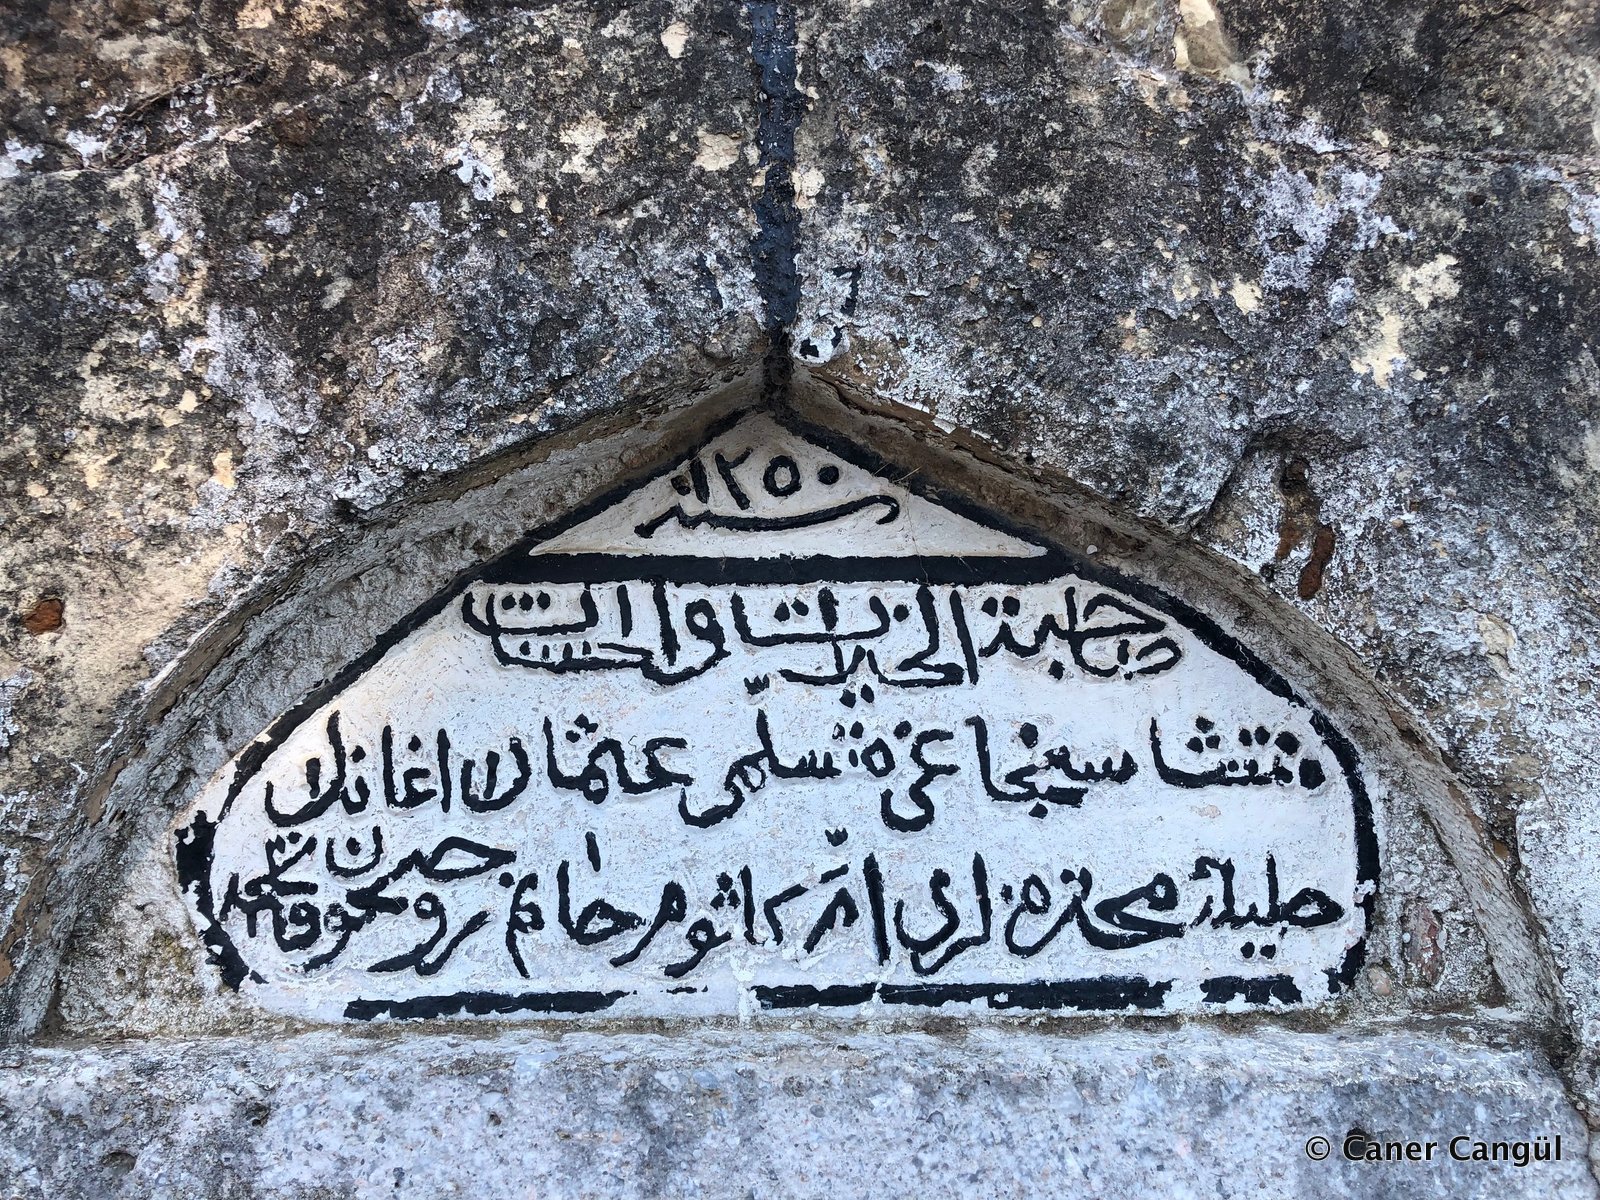 سنه ١٢٥٠
صاحبة الخيرات والحسنات
منتشا سنجاغی متسلمی عثمان اغانك
حليلۀ محترمه لری ام كلثوم خانم روحيچون فاتحه
© Caner Cangül